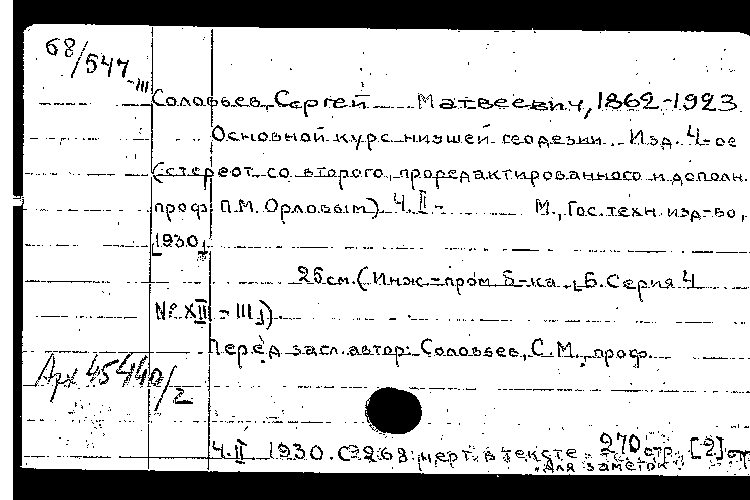 68/547-III
Соловьев, Сергей Матвеевич, 1862-1923
Основной курс низшей геодезии. Изд. 4-ое
(стереот. со второго, проредактированного и дополн.
проф. П.М. Орловым) Ч. II - М., Гос. техн. изд-во,
[1930]
26 см. (Инж.-пром. б-ка. [Б. Серия 4
№ XII - III])
Перед загл. автор: Соловьев, С.М., проф.
Арх 45440/2
Ч. II 1930. С 268 черт. в тексте. 270 стр., [2] стр.
"Для заметок"